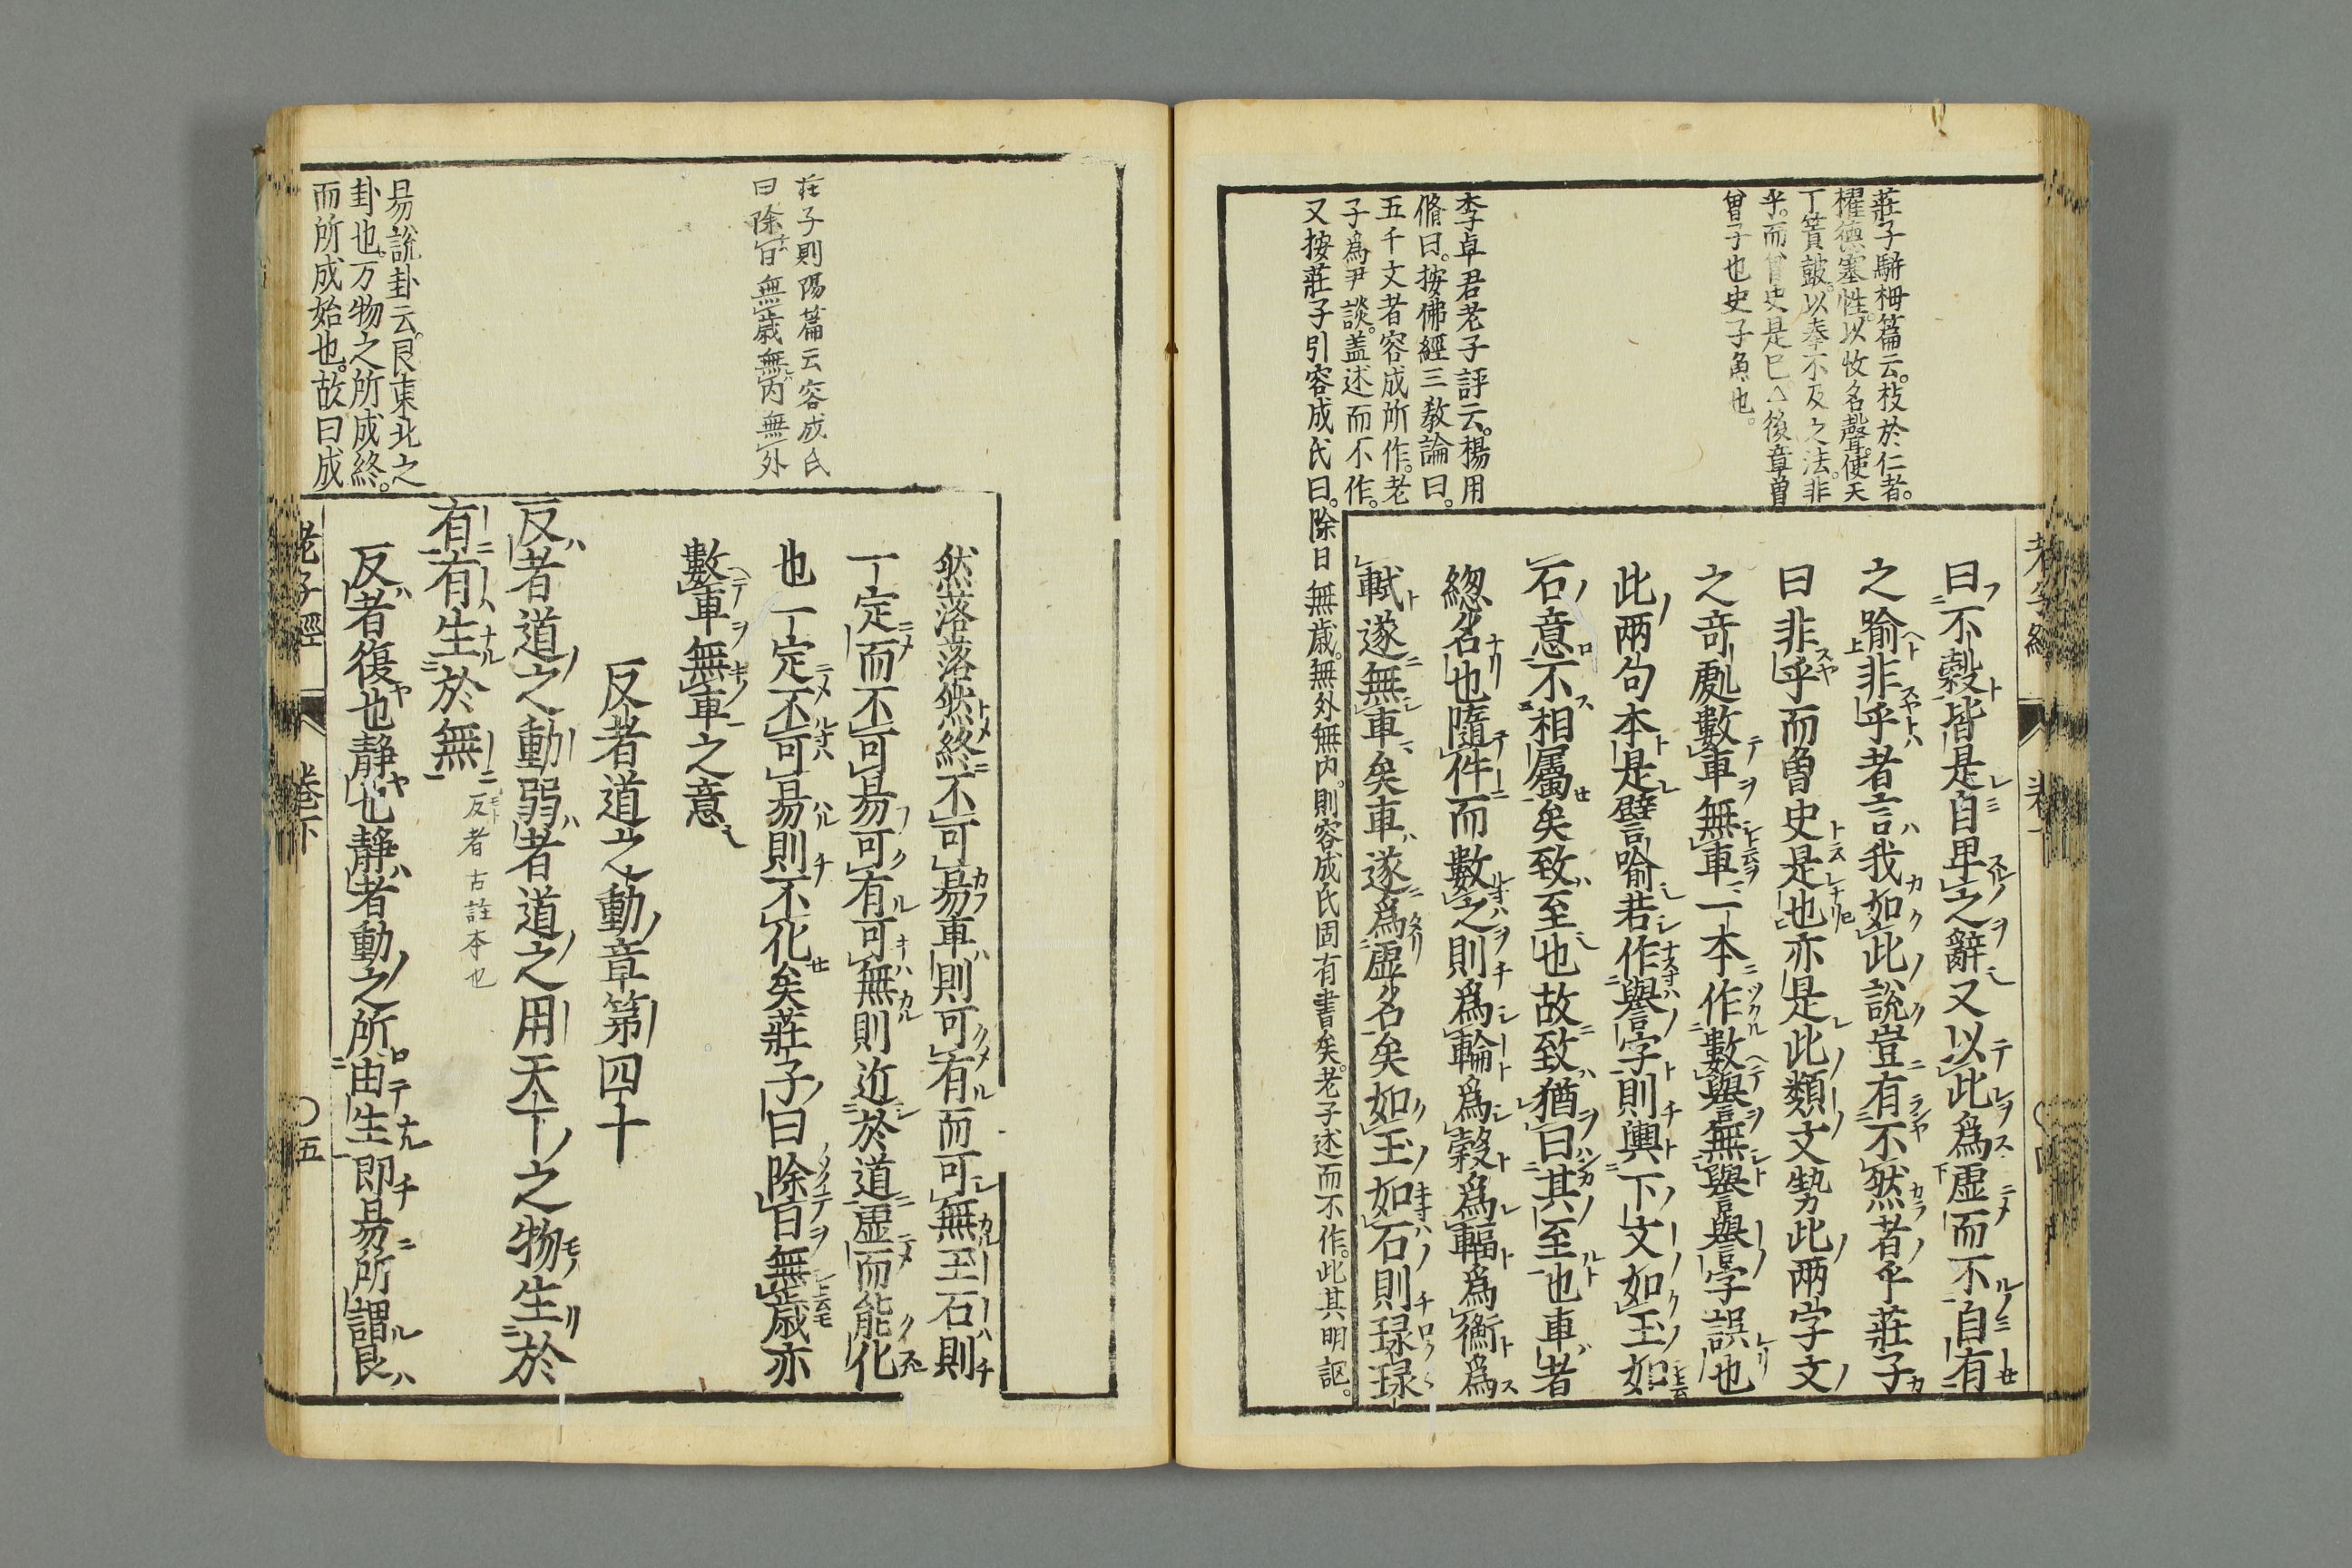 莊子駢拇篇云。枝於仁者。
擢德塞性。以收名聲。使天
下簧鼓。以奉不及之法。非
乎。而曾史是已△後章曾
曾子也史子魚也。
李卓君老子評云。楊用
脩曰。按佛經三教論曰。
五千文者容成所作。老
子爲尹談。盖述而不作。
又按莊子引容成氏曰。除日無歲。無外無内。則容成氏固有書矣。老子述而不作。此其明証。
曰不穀皆是自卑之辭又以此爲虛而不自有
之踰非乎者言我如此說豈有不然者乎莊子
曰非乎而曾史是也亦是此類文勢此兩字文
之奇處數車無車一本作數譽無譽譽字誤也
此兩句本是譬喻若作譽字則與下文如玉如
石意不相屬矣致至也故致猶曰其至也車者
緫名也隨件而數之則爲輪爲轂爲輻爲衡爲
軾遂無車矣車遂爲虛名矣如玉如石則琭琭
莊子則陽篇云容成氏
曰除日無歲無内無外
易說卦云。艮東北之
卦也。万物之所成終。
而所成始也。故曰成
然落落然終不可易車則可有而可無玉石則
一定而不可易可有可無則近於道虛而能化
也一定不可易則不化矣莊子曰除日無歲亦
數車無車之意
反者道之動章第四十
反者道之動弱者道之用天下之物生於
有有生於無 反者古註本也
反者復也静也静者動之所由生即易所謂艮
老子經 卷下 〇五